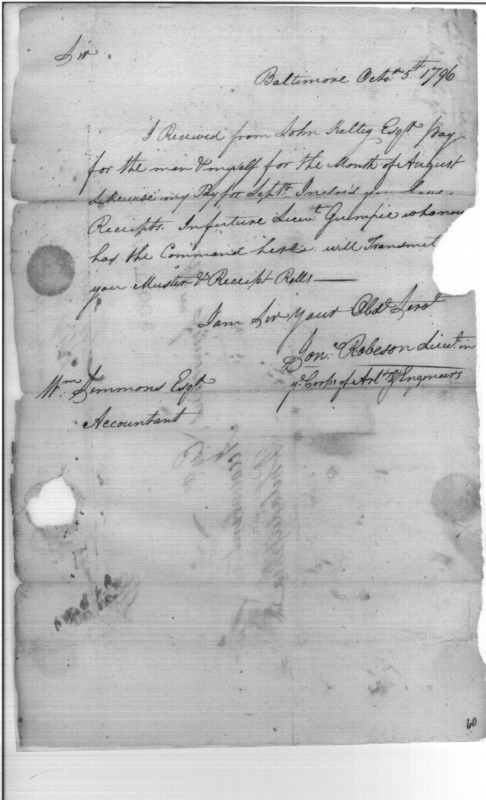 Sir
Baltimore Octor 5th 1796
I Received from John Kelty Esqr Pay
for the men & myself for the Month of August
Likewise my Pay for Septr Inclos'd you have
Receipts. In future Lieut who now
has the Command here will Transmit
you Muster & Receipt Rolls —
I am Sir Your Obdt Servt
Jonn Robeson Lieut in
ye Corps of Artt & Engineers
Wm Simmons Esqr
Accountant
60